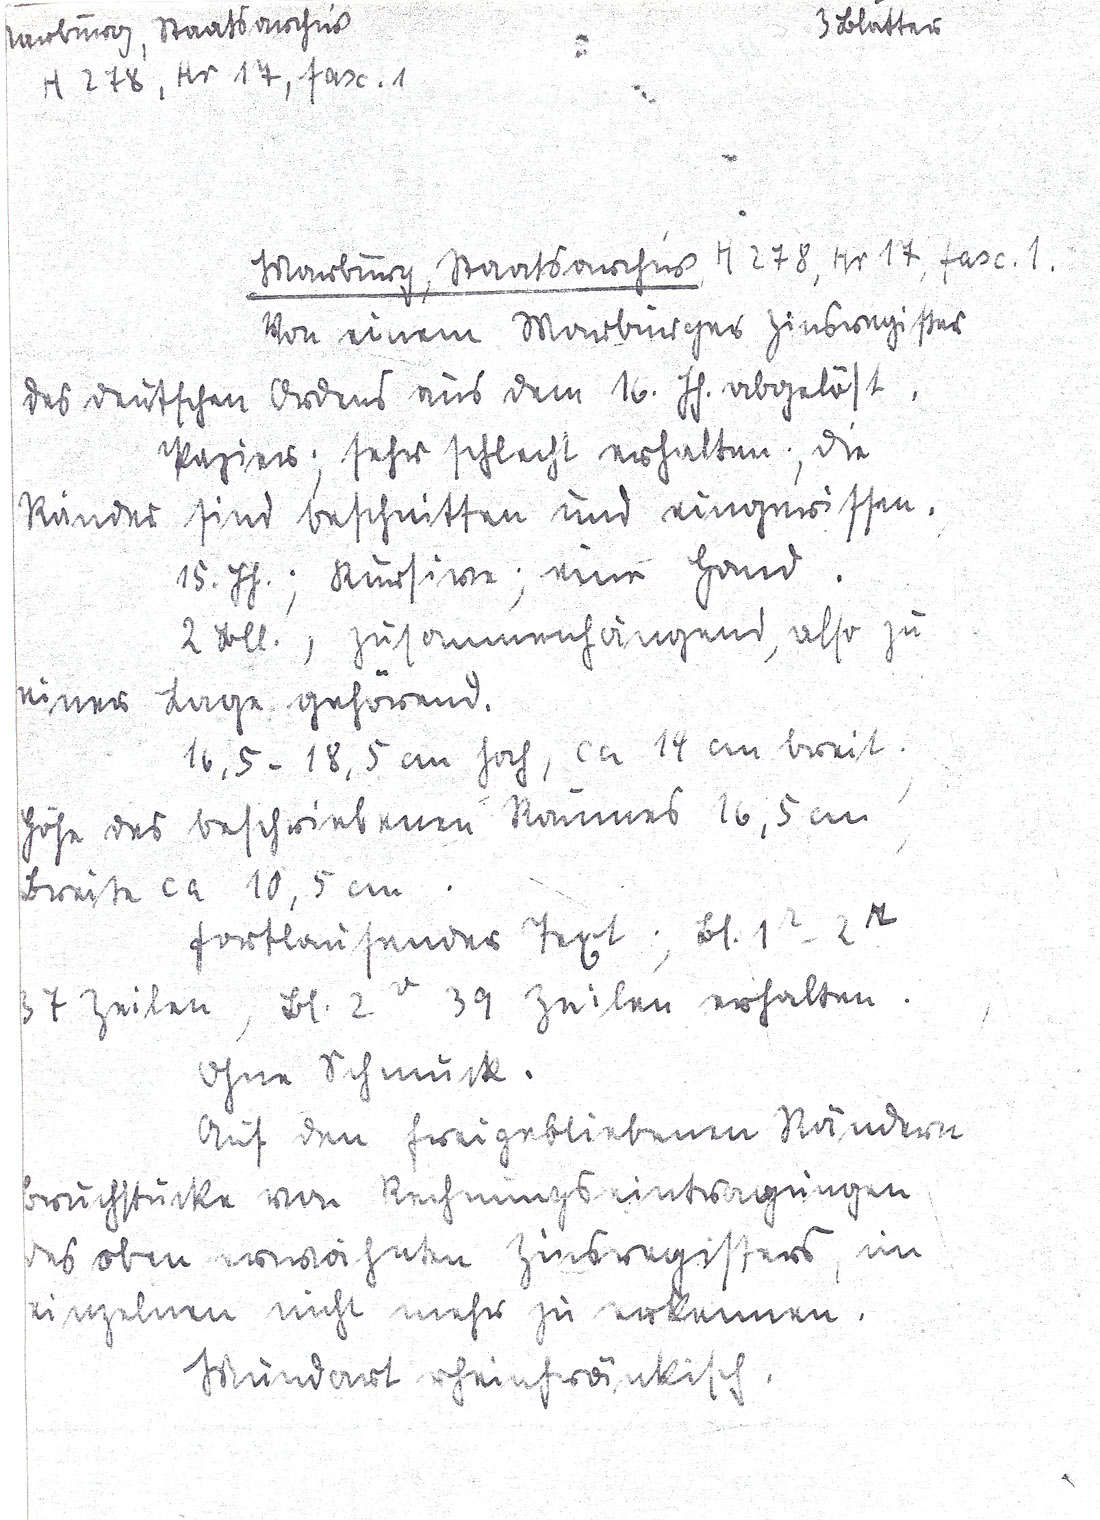 Marburg, Staatsarchiv
3 Blätter
H 278, Nr 17, fasc. 1
Marburg, Staatsarchiv, H 278, Nr 17, fasc. 1.
Von einem Marburger Zinsregister
des deutschen Ordens aus dem 16. Jh. abgelöst.
Papier; sehr schlecht erhalten; die
Ränder sind beschnitten und eingerissen.
15. Jh.; Kursive; eine Hand.
2 Bll., zusammenhängend, also zu
einer Lage gehörend.
16,5 - 18,5 cm hoch, ca 14 cm breit;
Höhe des beschriebenen Raumes 16,5 cm,
Breite ca 10,5 cm.
Fortlaufender Text; Bl. 1r - 2r
37 Zeilen, Bl. 2v 39 Zeilen erhalten.
Ohne Schmuck.
Auf den freigebliebenen Rändern
Bruchstücke von Rechnungseintragungen
des oben erwähnten Zinsregisters, im
einzelnen nicht mehr zu erkennen.
Mundart rheinfränkisch.